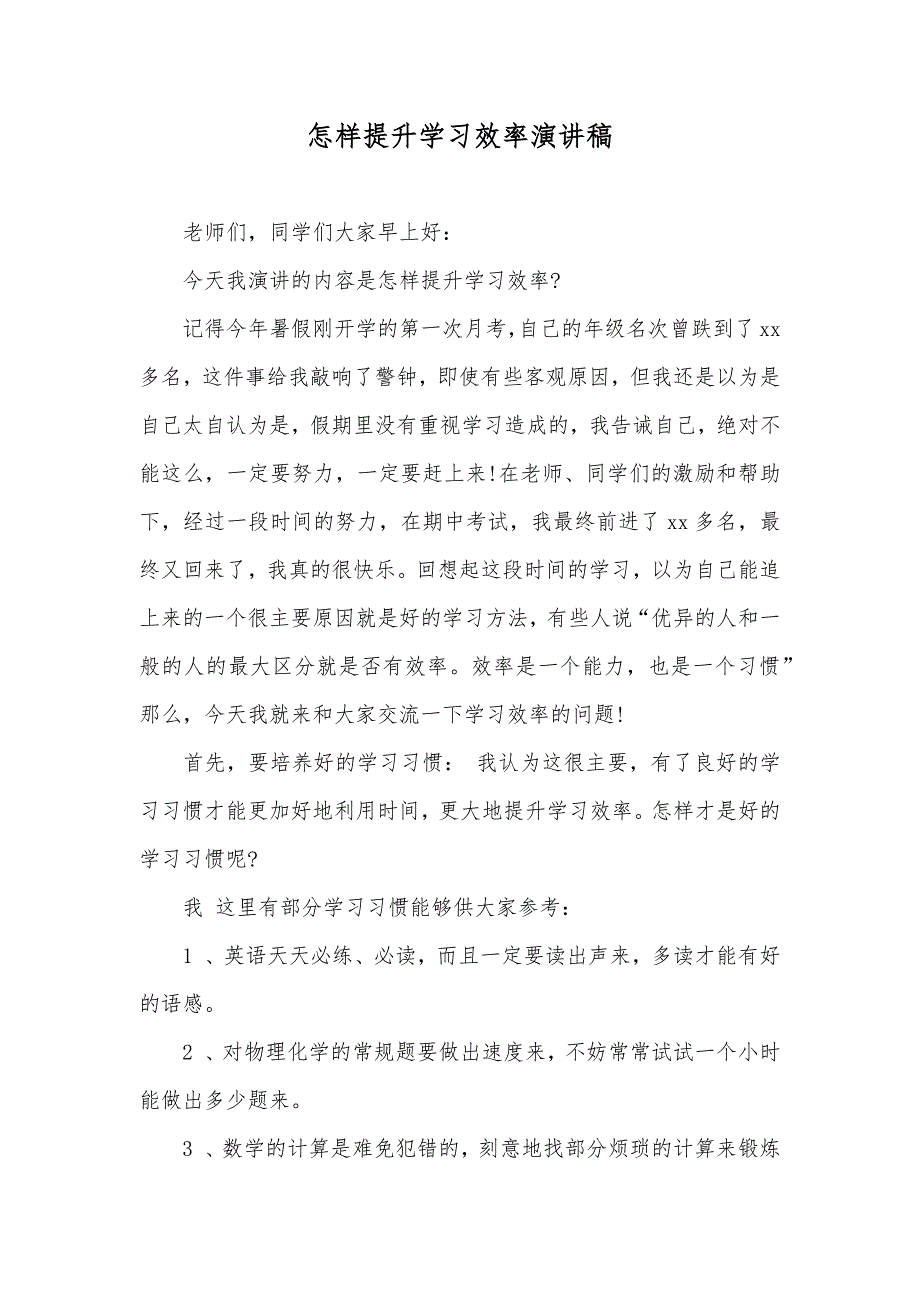 怎样提升学习效率演讲稿
老师们，同学们大家早上好：
今天我演讲的内容是怎样提升学习效率?
记得今年暑假刚开学的第一次月考，自己的年级名次曾跌到了 xx
多名，这件事给我敲响了警钟，即使有些客观原因，但我还是以为是
自己太自认为是，假期里没有重视学习造成的，我告诫自己，绝对不
能这么，一定要努力，一定要赶上来!在老师、同学们的激励和帮助
下，经过一段时间的努力，在期中考试，我最终前进了 xx 多名，最
终又回来了，我真的很快乐。回想起这段时间的学习，以为自己能追
上来的一个很主要原因就是好的学习方法，有些人说“优异的人和一
般的人的最大区分就是否有效率。效率是一个能力，也是一个习惯”
那么，今天我就来和大家交流一下学习效率的问题!
首先，要培养好的学习习惯： 我认为这很主要，有了良好的学
习习惯才能更加好地利用时间，更大地提升学习效率。怎样才是好的
学习习惯呢?
我 这里有部分学习习惯能够供大家参考：
1 、英语天天必练、必读，而且一定要读出声来，多读才能有好
的语感。
2 、对物理化学的常规题要做出速度来，不妨常常试试一个小时
能做出多少题来。
3 、数学的计算是难免犯错的，刻意地找部分烦琐的计算来锻炼